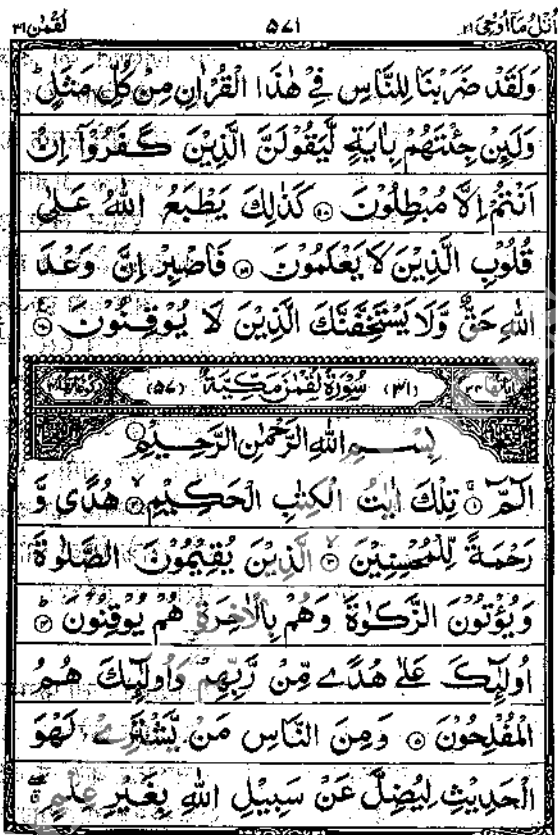 اُتْلُ مَآ اُوْحِىَ ٢١ ۵۷۱ لُقْمٰن ٣١
وَلَقَدْ ضَرَبْنَا لِلنَّاسِ فِىْ هٰذَا الْقُرْاٰنِ مِنْ كُلِّ مَثَلٍ ؕ
وَلَئِنْ جِئْتَهُمْ بِاٰيَةٍ لَّيَقُوْلَنَّ الَّذِيْنَ كَفَرُوْٓا اِنْ
اَنْتُمْ اِلَّا مُبْطِلُوْنَ ﴿۵۸﴾ كَذٰلِكَ يَطْبَعُ اللّٰهُ عَلٰى
قُلُوْبِ الَّذِيْنَ لَا يَعْلَمُوْنَ ﴿۵۹﴾ فَاصْبِرْ اِنَّ وَعْدَ
اللّٰهِ حَقٌّ وَّلَا يَسْتَخِفَّنَّكَ الَّذِيْنَ لَا يُوْقِنُوْنَ ﴿۶۰﴾
اٰيَاتُهَا ٣٤ (٣١) سُوْرَةُ لُقْمٰنَ مَكِّيَّةٌ (۵۷) رُكُوْعَاتُهَا ٤
بِسْمِ اللّٰهِ الرَّحْمٰنِ الرَّحِيْمِ
الٓمّٓ ﴿۱﴾ تِلْكَ اٰيٰتُ الْكِتٰبِ الْحَكِيْمِ ﴿۲﴾ هُدًى وَّ
رَحْمَةً لِّلْمُحْسِنِيْنَ ﴿۳﴾ الَّذِيْنَ يُقِيْمُوْنَ الصَّلٰوةَ
وَيُؤْتُوْنَ الزَّكٰوةَ وَهُمْ بِالْاٰخِرَةِ هُمْ يُوْقِنُوْنَ ﴿۴﴾
اُولٰٓئِكَ عَلٰى هُدًى مِّنْ رَّبِّهِمْ وَاُولٰٓئِكَ هُمُ
الْمُفْلِحُوْنَ ﴿۵﴾ وَمِنَ النَّاسِ مَنْ يَّشْتَرِىْ لَهْوَ
الْحَدِيْثِ لِيُضِلَّ عَنْ سَبِيْلِ اللّٰهِ بِغَيْرِ عِلْمٍ